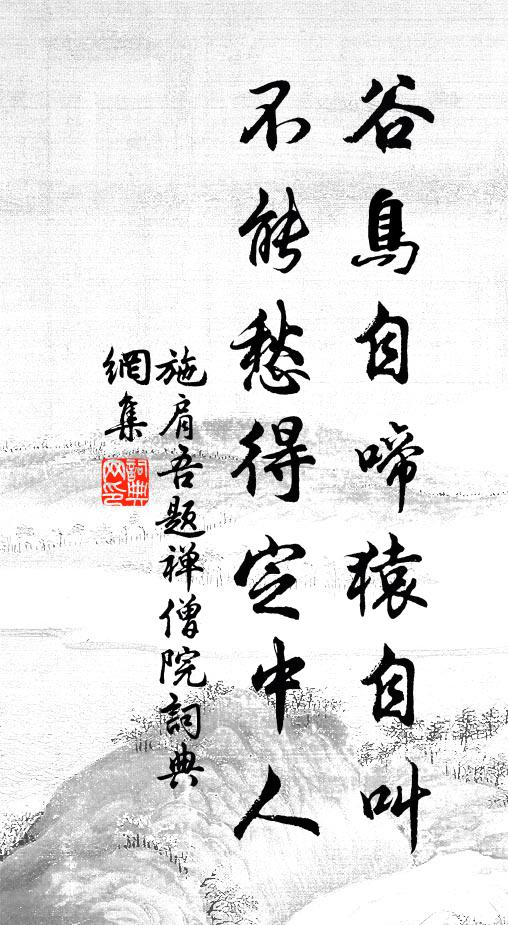 谷鳥自啼猿自叫
不能愁得定中人
施肩吾題禅僧院詞典
網集
詞典網印